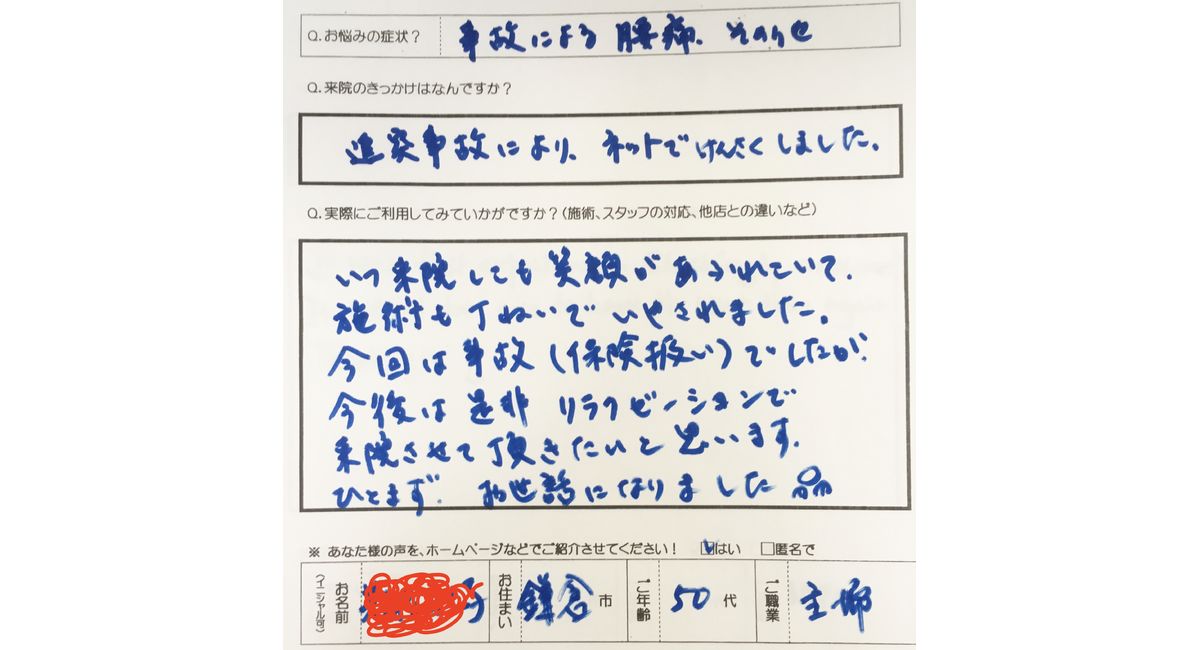 Q. お悩みの症状? 事故による腰痛、その他
Q. 来院のきっかけはなんですか?
追突事故により、ネットでけんさくしました。
Q. 実際にご利用してみていかがですか?(施術、スタッフの対応、他店との違いなど)
いつ来院しても笑顔があふれていて、
施術も丁ねいでいやされました。
今回は事故(保険扱い)でしたが、
今後は是非リラクゼーションで
来院させて頂きたいと思います。
ひとまず、お世話になりました
※ あなた様の声を、ホームページなどでご紹介させてください! はい 匿名で
お名前 (イニシャル可) お住まい 鎌倉 市 ご年齢 50 代 ご職業 主婦